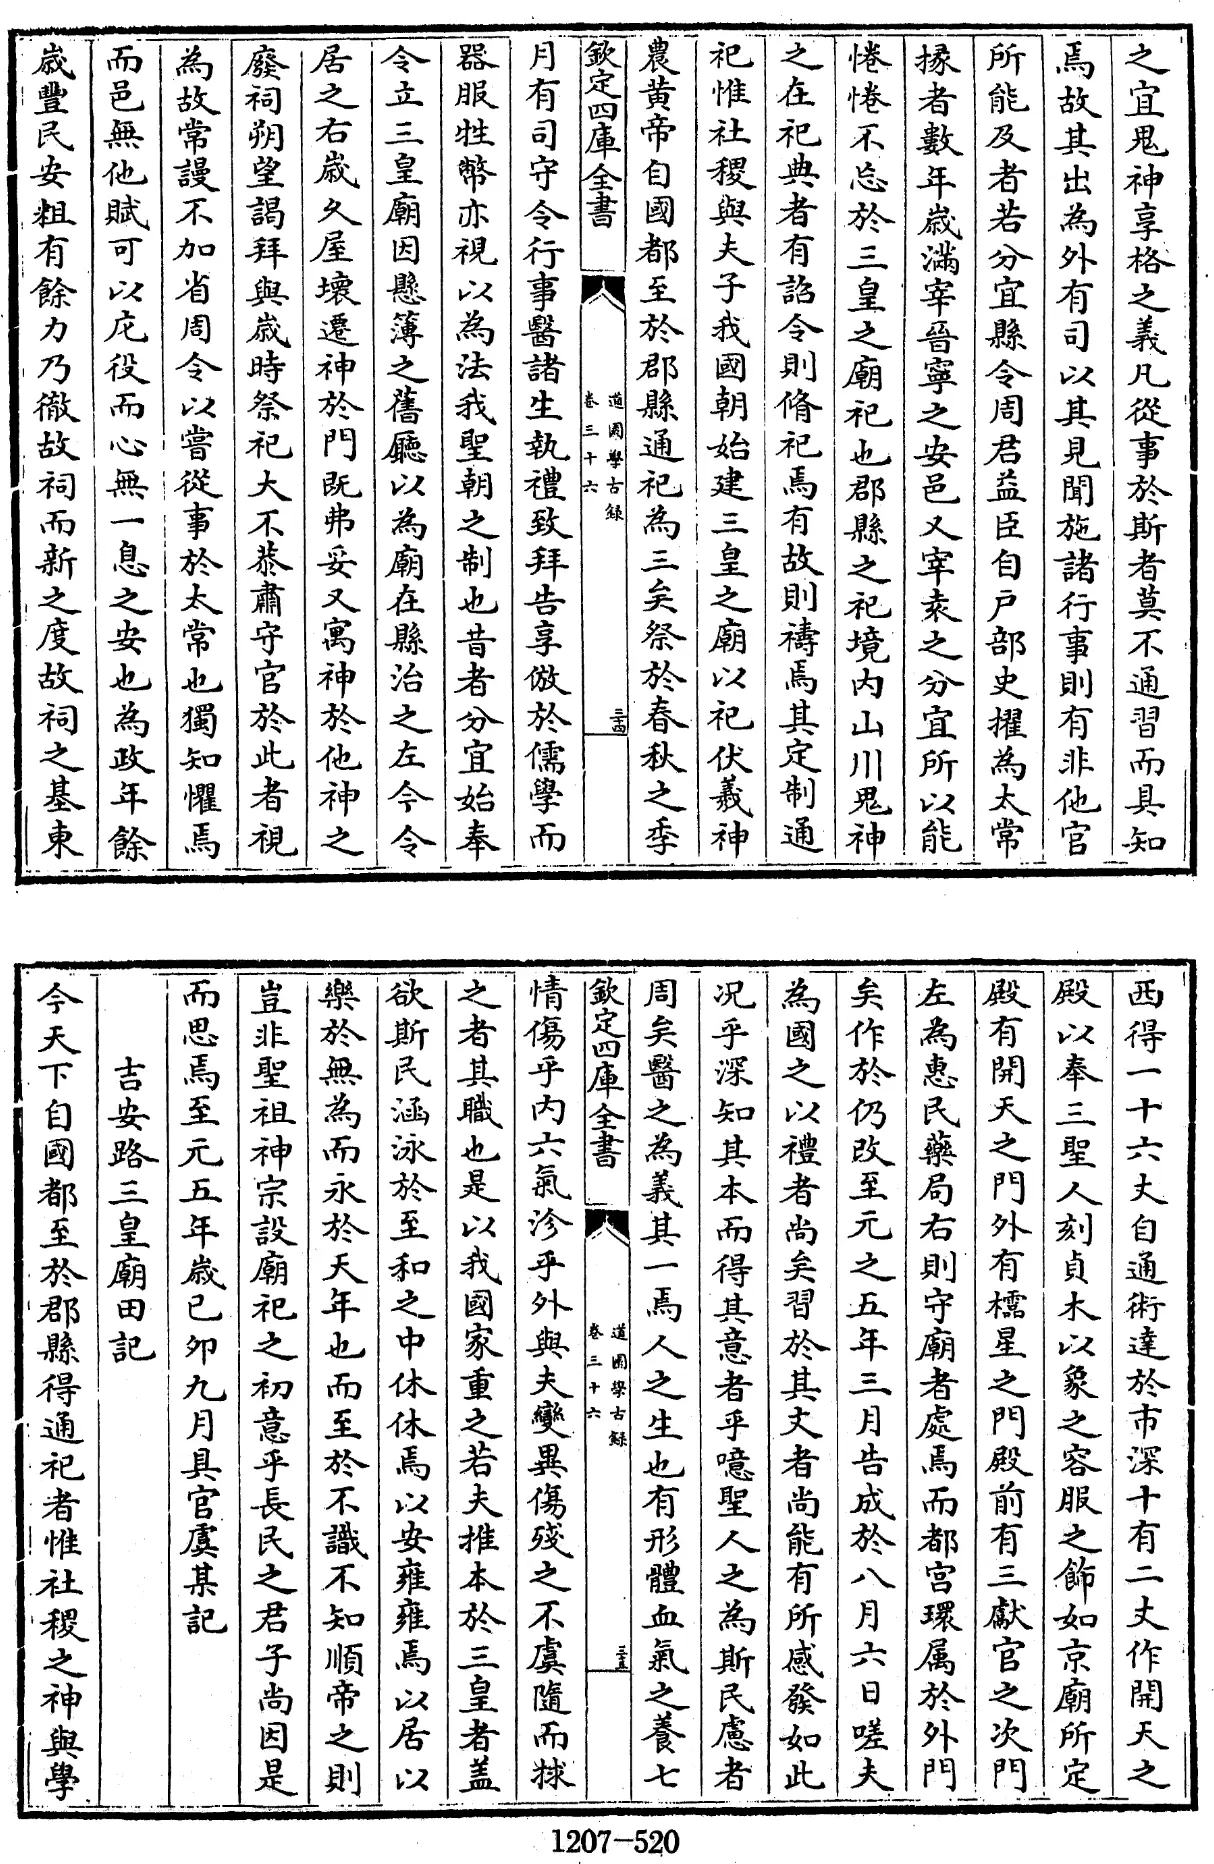 之宜鬼神享格之義凡從事於斯者莫不通習而具知
焉故其出為外有司以其見聞施諸行事則有非他官
所能及者若分宜縣令周君益臣自戸部史擢為太常
掾者數年歳滿宰晉寧之安邑又宰袁之分宜所以能
惓惓不忘於三皇之廟祀也郡縣之祀境内山川鬼神
之在祀典者有詔令則脩祀焉有故則禱焉其定制通
祀惟社稷與夫子我國朝始建三皇之廟以祀伏羲神
農黄帝自國都至於郡縣通祀為三矣祭於春秋之季
欽定四庫全書
道園學古録
卷三十六
三十四
月有司守令行事醫諸生執禮致拜告享倣於儒學而
器服牲幣亦視以為法我聖朝之制也昔者分宜始奉
令立三皇廟因懸簿之舊廳以為廟在縣治之左今令
居之右歳久屋壊遷神於門既弗妥又寓神於他神之
廢祠朔望謁拜與歳時祭祀大不恭肅守官於此者視
為故常謾不加省周令以嘗從事於太常也獨知懼焉
而邑無他賦可以庀役而心無一息之安也為政年餘
歳豐民安粗有餘力乃徹故祠而新之度故祠之基東
西得一十六丈自通術達於市深十有二丈作開天之
殿以奉三聖人刻貞木以象之容服之飾如京廟所定
殿有開天之門外有櫺星之門殿前有三獻官之次門
左為惠民藥局右則守廟者處焉而都宫環属於外門
矣作於仍改至元之五年三月告成於八月六日嗟夫
為國之以禮者尚矣習於其文者尚能有所感發如此
况乎深知其本而得其意者乎噫聖人之為斯民慮者
周矣醫之為義其一焉人之生也有形體血氣之養七
欽定四庫全書
道園學古録
卷三十六
三十五
情傷乎内六氣沴乎外與夫變異傷殘之不虞隨而救
之者其職也是以我國家重之若夫推本於三皇者盖
欲斯民涵泳於至和之中休休焉以安雍雍焉以居以
樂於無為而永於天年也而至於不識不知順帝之則
豈非聖祖神宗設廟祀之初意乎長民之君子尚因是
而思焉至元五年歳己卯九月具官虞某記
吉安路三皇廟田記
今天下自國都至於郡縣得通祀者惟社稷之神與學
1207-520